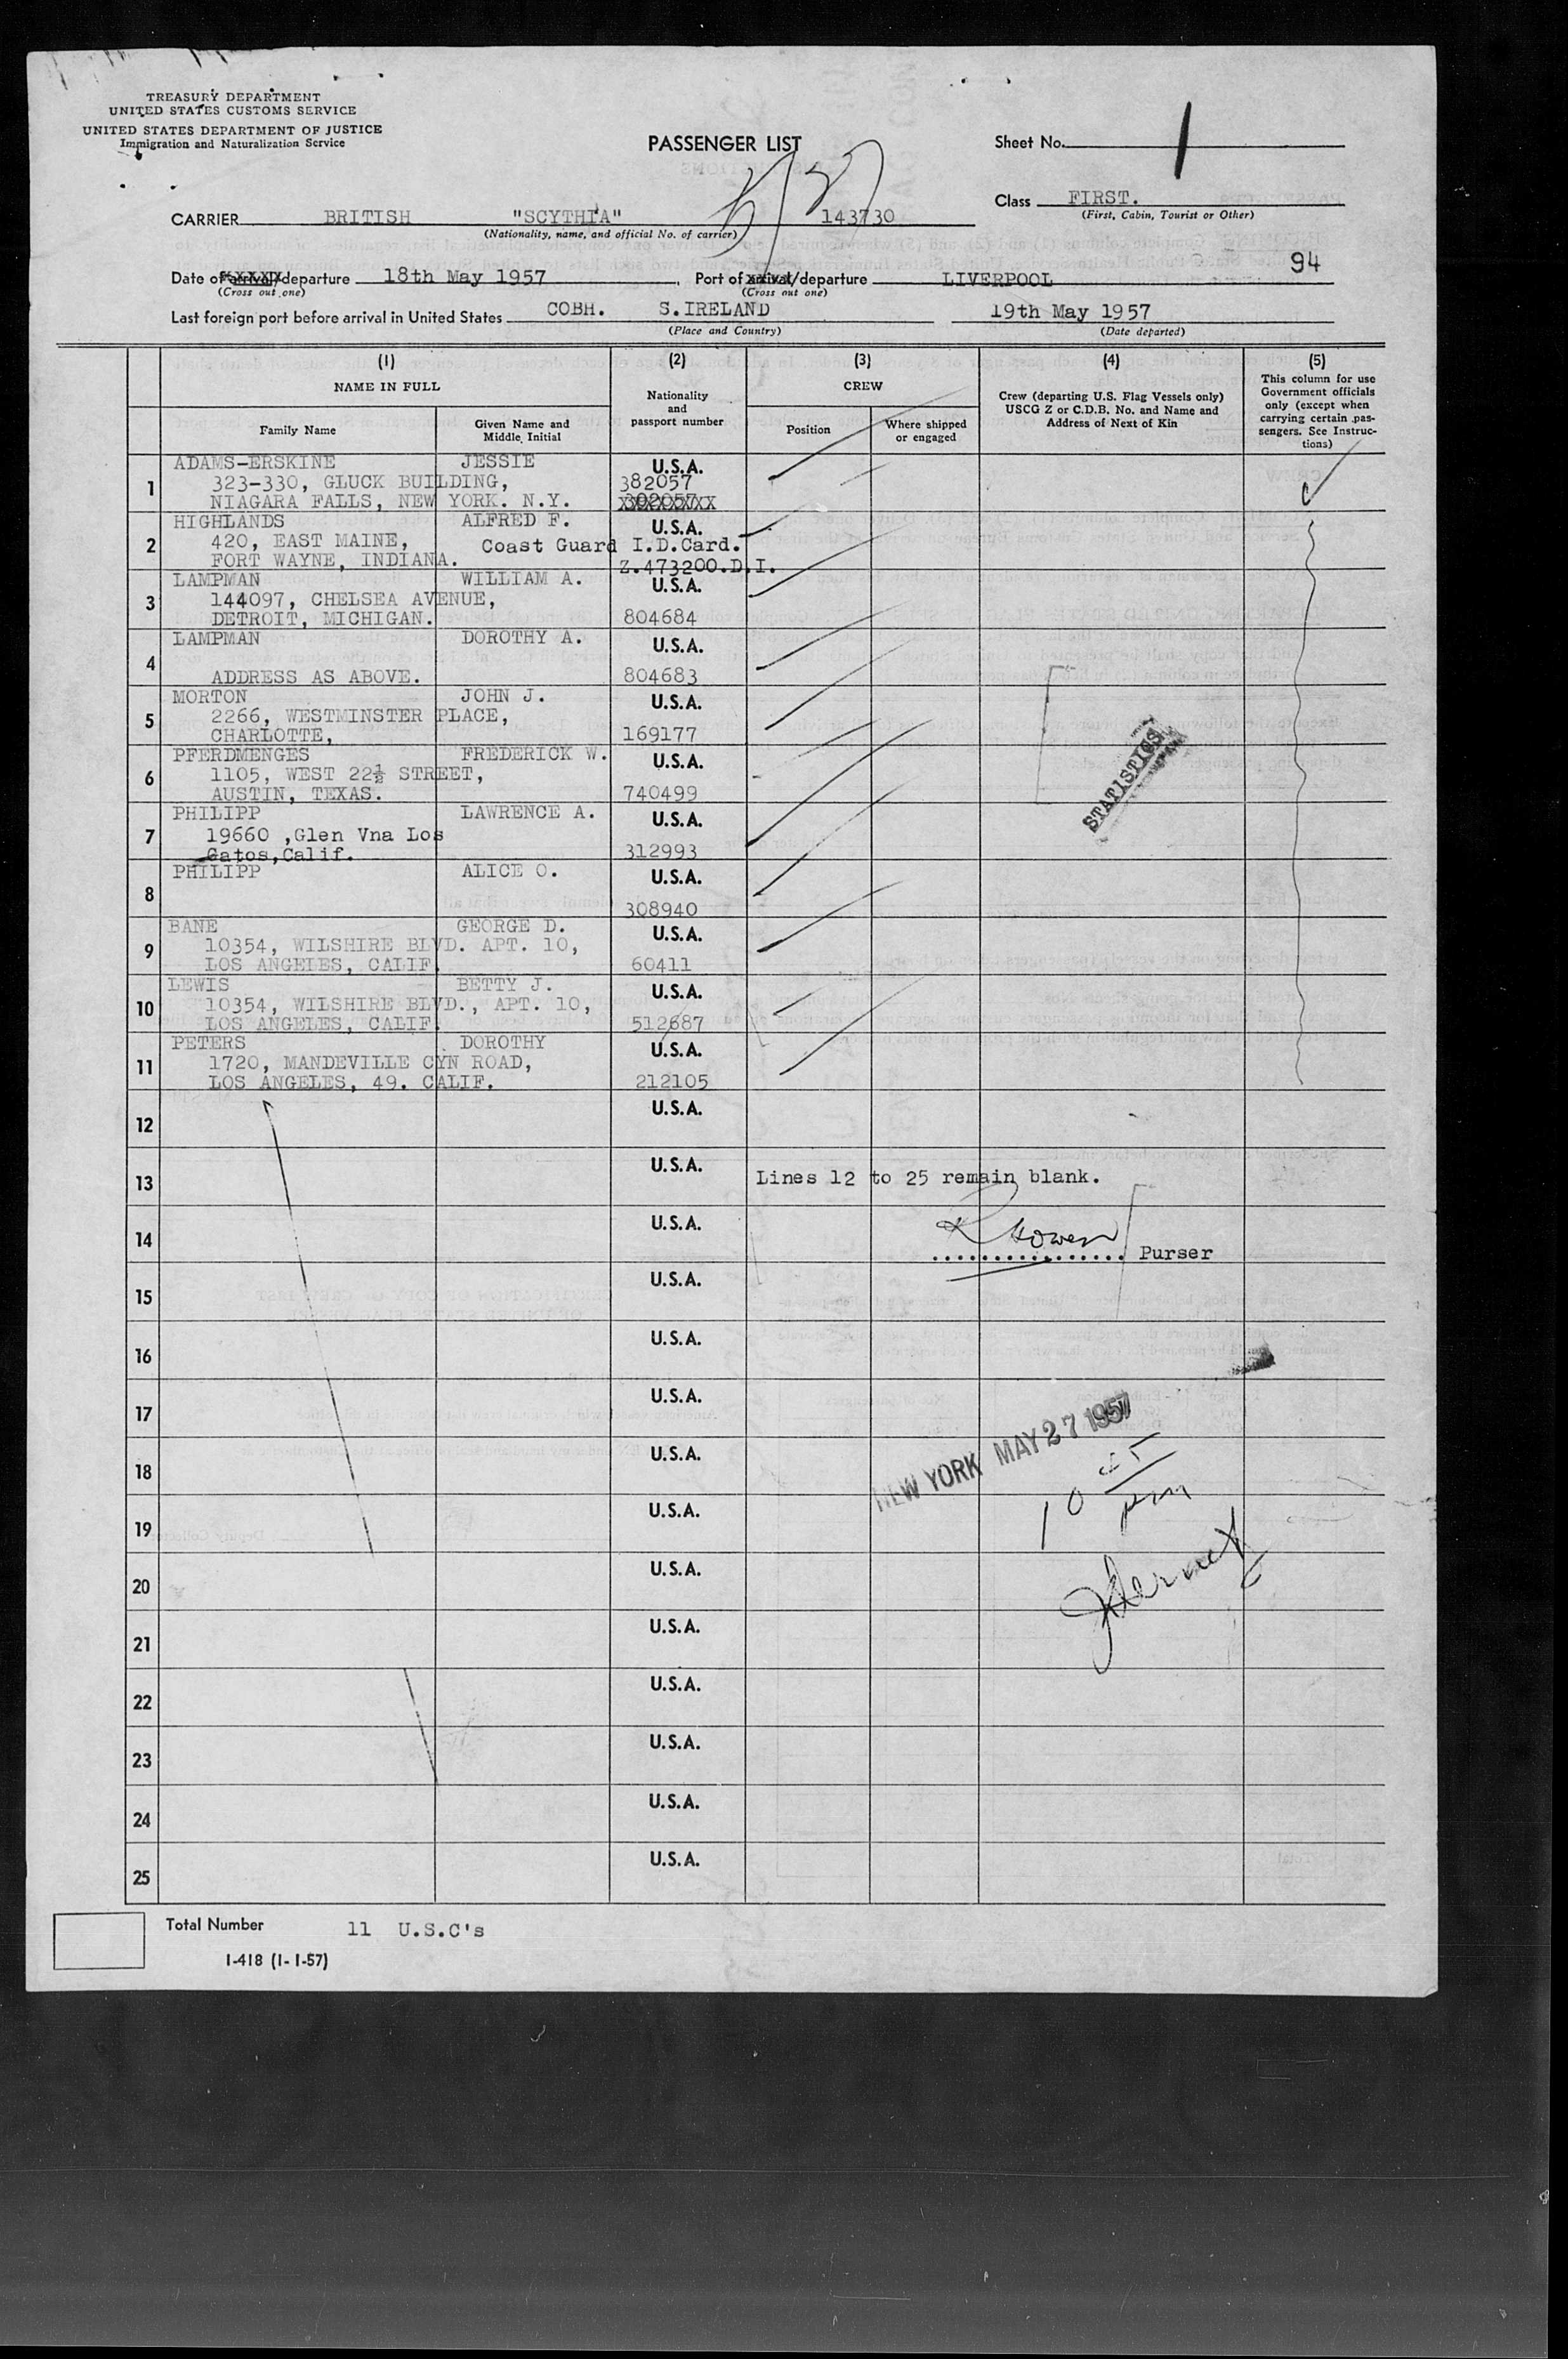 TREASURY DEPARTMENT
UNITED STATES CUSTOMS SERVICE
UNITED STATES DEPARTMENT OF JUSTICE
Immigration and Naturalization Service
PASSENGER LIST
Sheet No. 1
Class FIRST.
(First, Cabin, Tourist or Other)
CARRIER BRITISH "SCYTHIA" 143730
(Nationality, name, and official No. of carrier)
94
Date of arrival/departure 18th May 1957. Port of arrival/departure LIVERPOOL
(Cross out one) (Cross out one)
Last foreign port before arrival in United States COBH. S.IRELAND 19th May 1957
(Place and Country) (Date departed)
(1) (2) (3) (4) (5)
NAME IN FULL
Family Name
Given Name and Middle Initial
Nationality and passport number
CREW
Position
Where shipped or engaged
Crew (departing U.S. Flag Vessels only)
USCG Z or C.D.B. No. and Name and
Address of Next of Kin
This column for use
Government officials
only (except when
carrying certain pas-
sengers. See Instruc-
tions)
1 ADAMS-ERSKINE JESSIE U.S.A.
323-330, GLUCK BUILDING, 382057
NIAGARA FALLS, NEW YORK. N.Y.
2 HIGHLANDS ALFRED F. U.S.A.
420, EAST MAINE, Coast Guard I.D.Card.
FORT WAYNE, INDIANA. Z.473200.D.I.
3 LAMPMAN WILLIAM A. U.S.A.
144097, CHELSEA AVENUE,
DETROIT, MICHIGAN. 804684
4 LAMPMAN DOROTHY A. U.S.A.
ADDRESS AS ABOVE. 804683
5 MORTON JOHN J. U.S.A.
2266, WESTMINSTER PLACE,
CHARLOTTE, 169177
6 PFERDMENGES FREDERICK W. U.S.A.
1105, WEST 22½ STREET,
AUSTIN, TEXAS. 740499
7 PHILIPP LAWRENCE A. U.S.A.
19660 ,Glen Vna Los
Gatos,Calif. 312993
8 PHILIPP ALICE O. U.S.A.
308940
9 BANE GEORGE D. U.S.A.
10354, WILSHIRE BLVD. APT. 10,
LOS ANGELES, CALIF. 60411
10 LEWIS BETTY J. U.S.A.
10354, WILSHIRE BLVD., APT. 10,
LOS ANGELES, CALIF. 512687
11 PETERS DOROTHY U.S.A.
1720, MANDEVILLE CYN ROAD,
LOS ANGELES, 49. CALIF. 212105
STATISTICS
12 U.S.A.
13 U.S.A. Lines 12 to 25 remain blank.
14 U.S.A. Purser
15 U.S.A.
16 U.S.A.
17 U.S.A.
NEW YORK MAY 27 1957
18 U.S.A.
19 U.S.A.
20 U.S.A.
21 U.S.A.
22 U.S.A.
23 U.S.A.
24 U.S.A.
25 U.S.A.
Total Number 11 U.S.C's
I-418 (1-1-57)